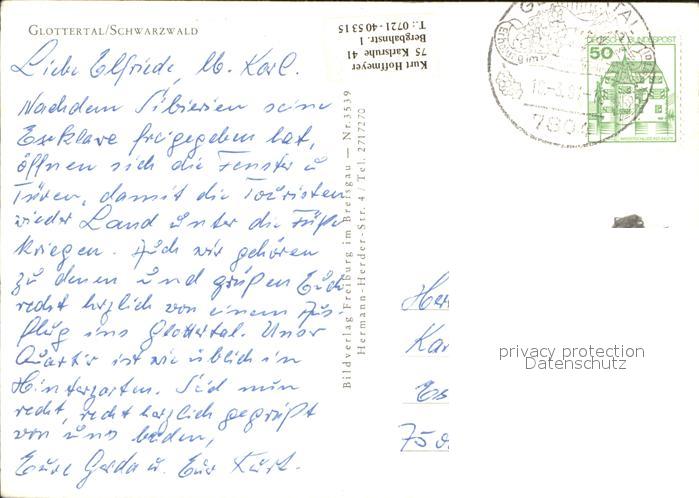 GLOTTERTAL/SCHWARZWALD
Liebe Elfriede, lb. Karl.
Nachdem Sibirien seine
Exklave freigegeben hat,
öffnen sich die Fenster u
Türen, damit die Touristen
wieder Land unter die Füße
kriegen. Auch wir gehören
zu denen und grüßen Euch
recht herzlich von einem Aus-
flug ins Glottertal. Unser
Quartier ist wie üblich in
Hinterzarten. Seid nun
recht, recht herzlich gegrüßt
von uns beiden,
Eure Gerda u. Euer Kurt.
Kurt Hoffmeyer
75 Karlsruhe 41
Bergbahnstr. 1
T.: 0721-405315
Bildverlag Freiburg im Breisgau — Nr. 3539
Hermann-Herder-Str. 4 / Tel. 2717270
GLOTTERTAL
7804
DEUTSCHE BUNDESPOST
50
Her
Kar
Es
75
privacy protection
Datenschutz